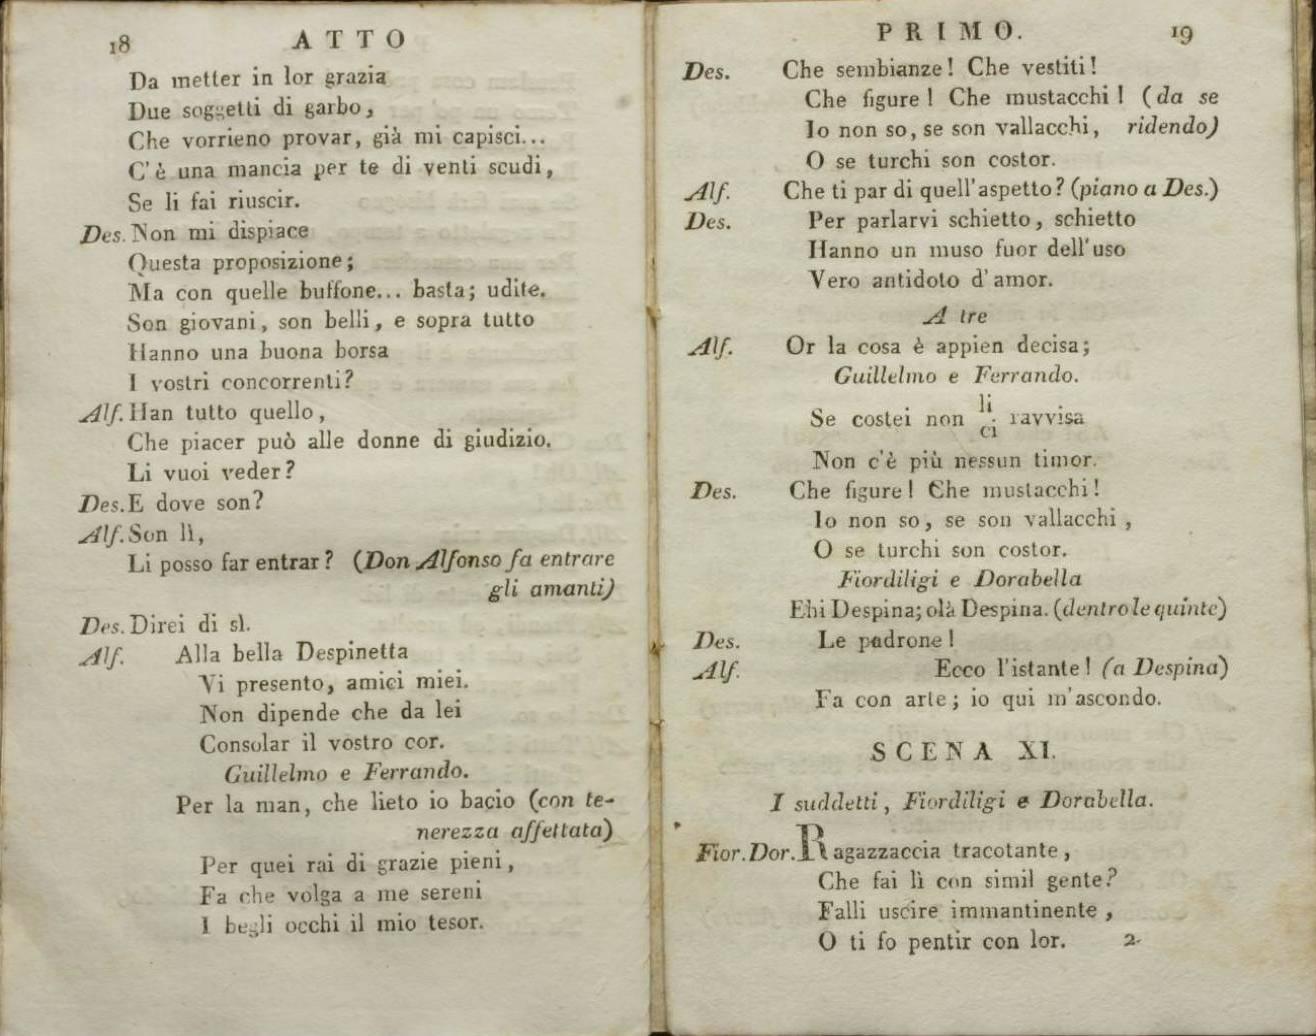 18 ATTO
Da metter in lor grazia
Due soggetti di garbo,
Che vorrieno provar, già mi capisci...
C'è una mancia per te di venti scudi,
Se li fai riuscir.
Des. Non mi dispiace
Questa proposizione;
Ma con quelle buffone... basta; udite.
Son giovani, son belli, e sopra tutto
Hanno una buona borsa
I vostri concorrenti?
Alf. Han tutto quello,
Che piacer può alle donne di giudizio.
Li vuoi veder?
Des. E dove son?
Alf. Son lì,
Li posso far entrar? (Don Alfonso fa entrare
gli amanti)
Des. Direi di sì.
Alf. Alla bella Despinetta
Vi presento, amici miei.
Non dipende che da lei
Consolar il vostro cor.
Guillelmo e Ferrando.
Per la man, che lieto io bacio (con te-
nerezza affettata)
Per quei rai di grazie pieni,
Fa che volga a me sereni
I begli occhi il mio tesor.
PRIMO. 19
Des. Che sembianze! Che vestiti!
Che figure! Che mustacchi! (da se
Io non so, se son vallacchi, ridendo)
O se turchi son costor.
Alf. Che ti par di quell'aspetto? (piano a Des.)
Des. Per parlarvi schietto, schietto
Hanno un muso fuor dell'uso
Vero antidoto d'amor.
A tre
Alf. Or la cosa è appien decisa;
Guillelmo e Ferrando.
Se costei non li ci ravvisa
Non c'è più nessun timor.
Des. Che figure! Che mustacchi!
Io non so, se son vallacchi,
O se turchi son costor.
Fiordiligi e Dorabella
Ehi Despina; olà Despina. (dentro le quinte)
Des. Le padrone!
Alf. Ecco l'istante! (a Despina)
Fa con arte; io qui m'ascondo.
SCENA XI.
I suddetti, Fiordiligi e Dorabella.
Fior. Dor. Ragazzaccia tracotante,
Che fai lì con simil gente?
Falli uscire immantinente,
O ti fo pentir con lor. 2